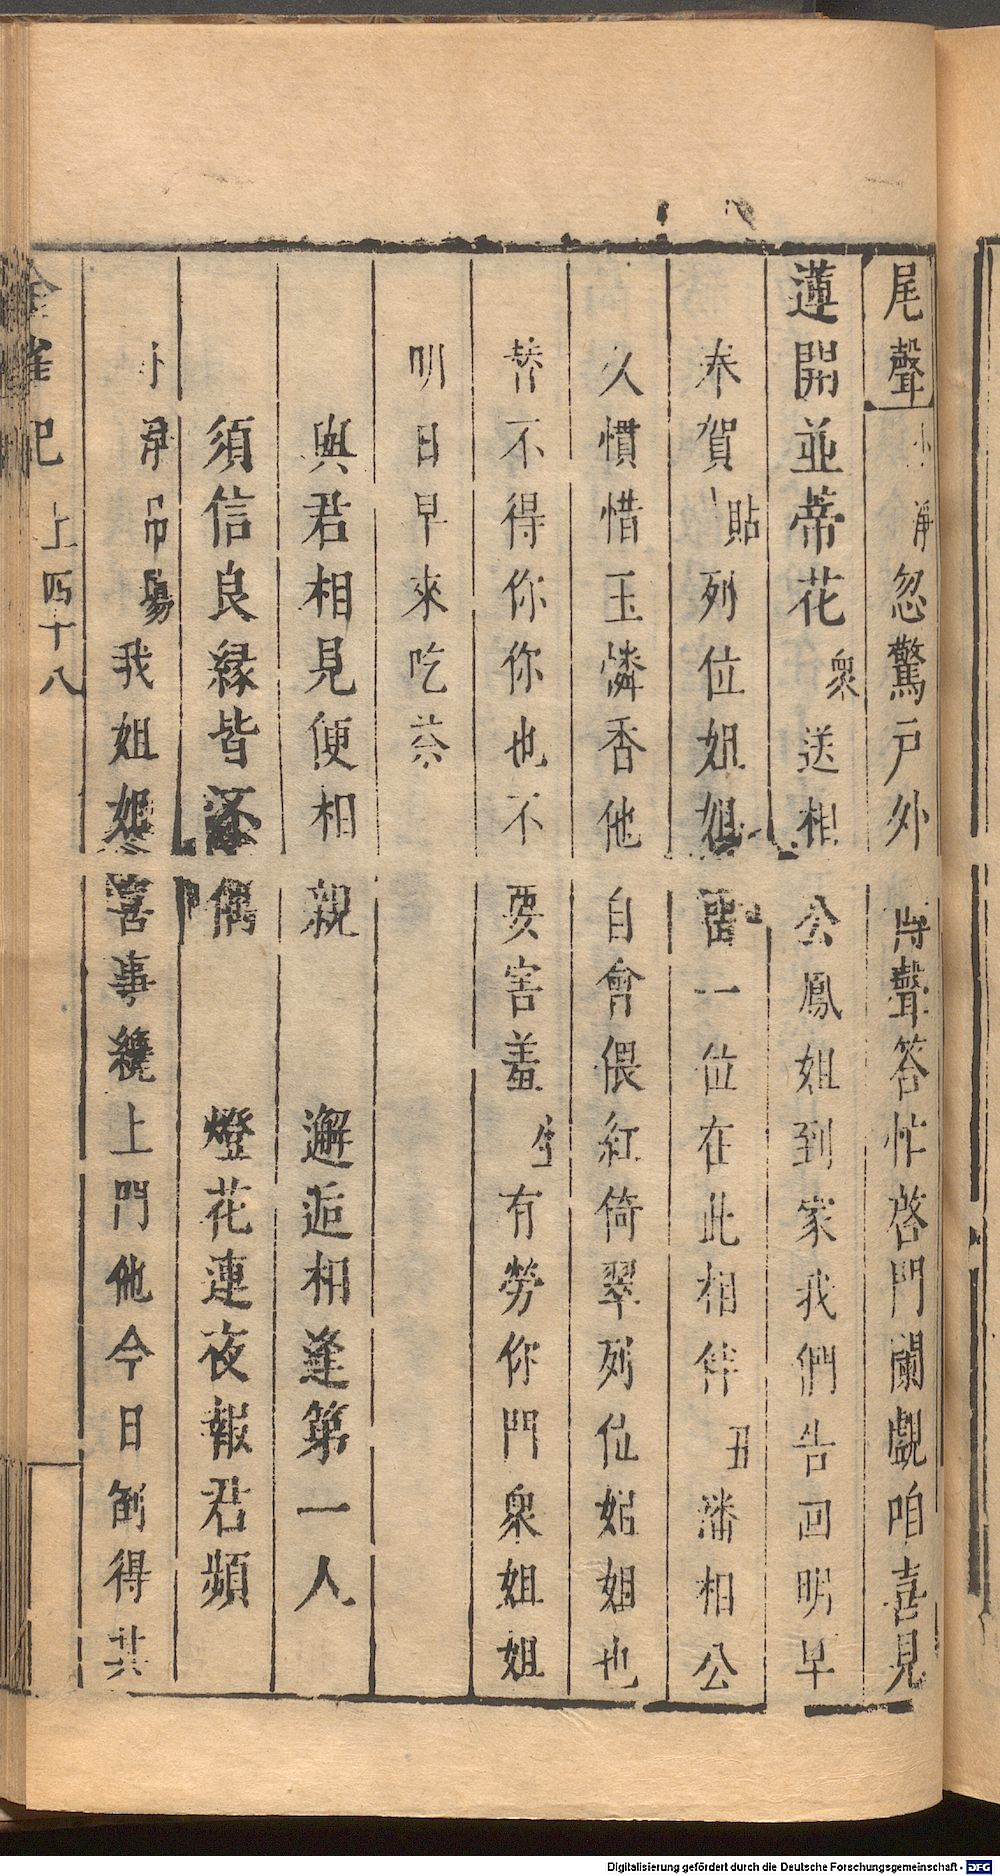 尾聲 小淨 忽驚戶外聲答忙啓門闌覷咱喜見
蓮開並蒂花 衆 送相公鳳姐到家我們告回明早
奉賀 貼 列位姐姐畱一位在此相伴 丑 潘相公
久慣惜玉憐香他自會偎紅倚翠列位姐姐也
替不得你你也不要害羞 生 有勞你門衆姐姐
明日早來吃茶
與君相見便相親　邂逅相逢第一人
須信良緣皆不偶　燈花連夜報君頻
小淨吊場 我姐姐喜事纔上門他今日剛得共
金雀記 上 四十八
Digitalisierung gefördert durch die Deutsche Forschungsgemeinschaft - DFG